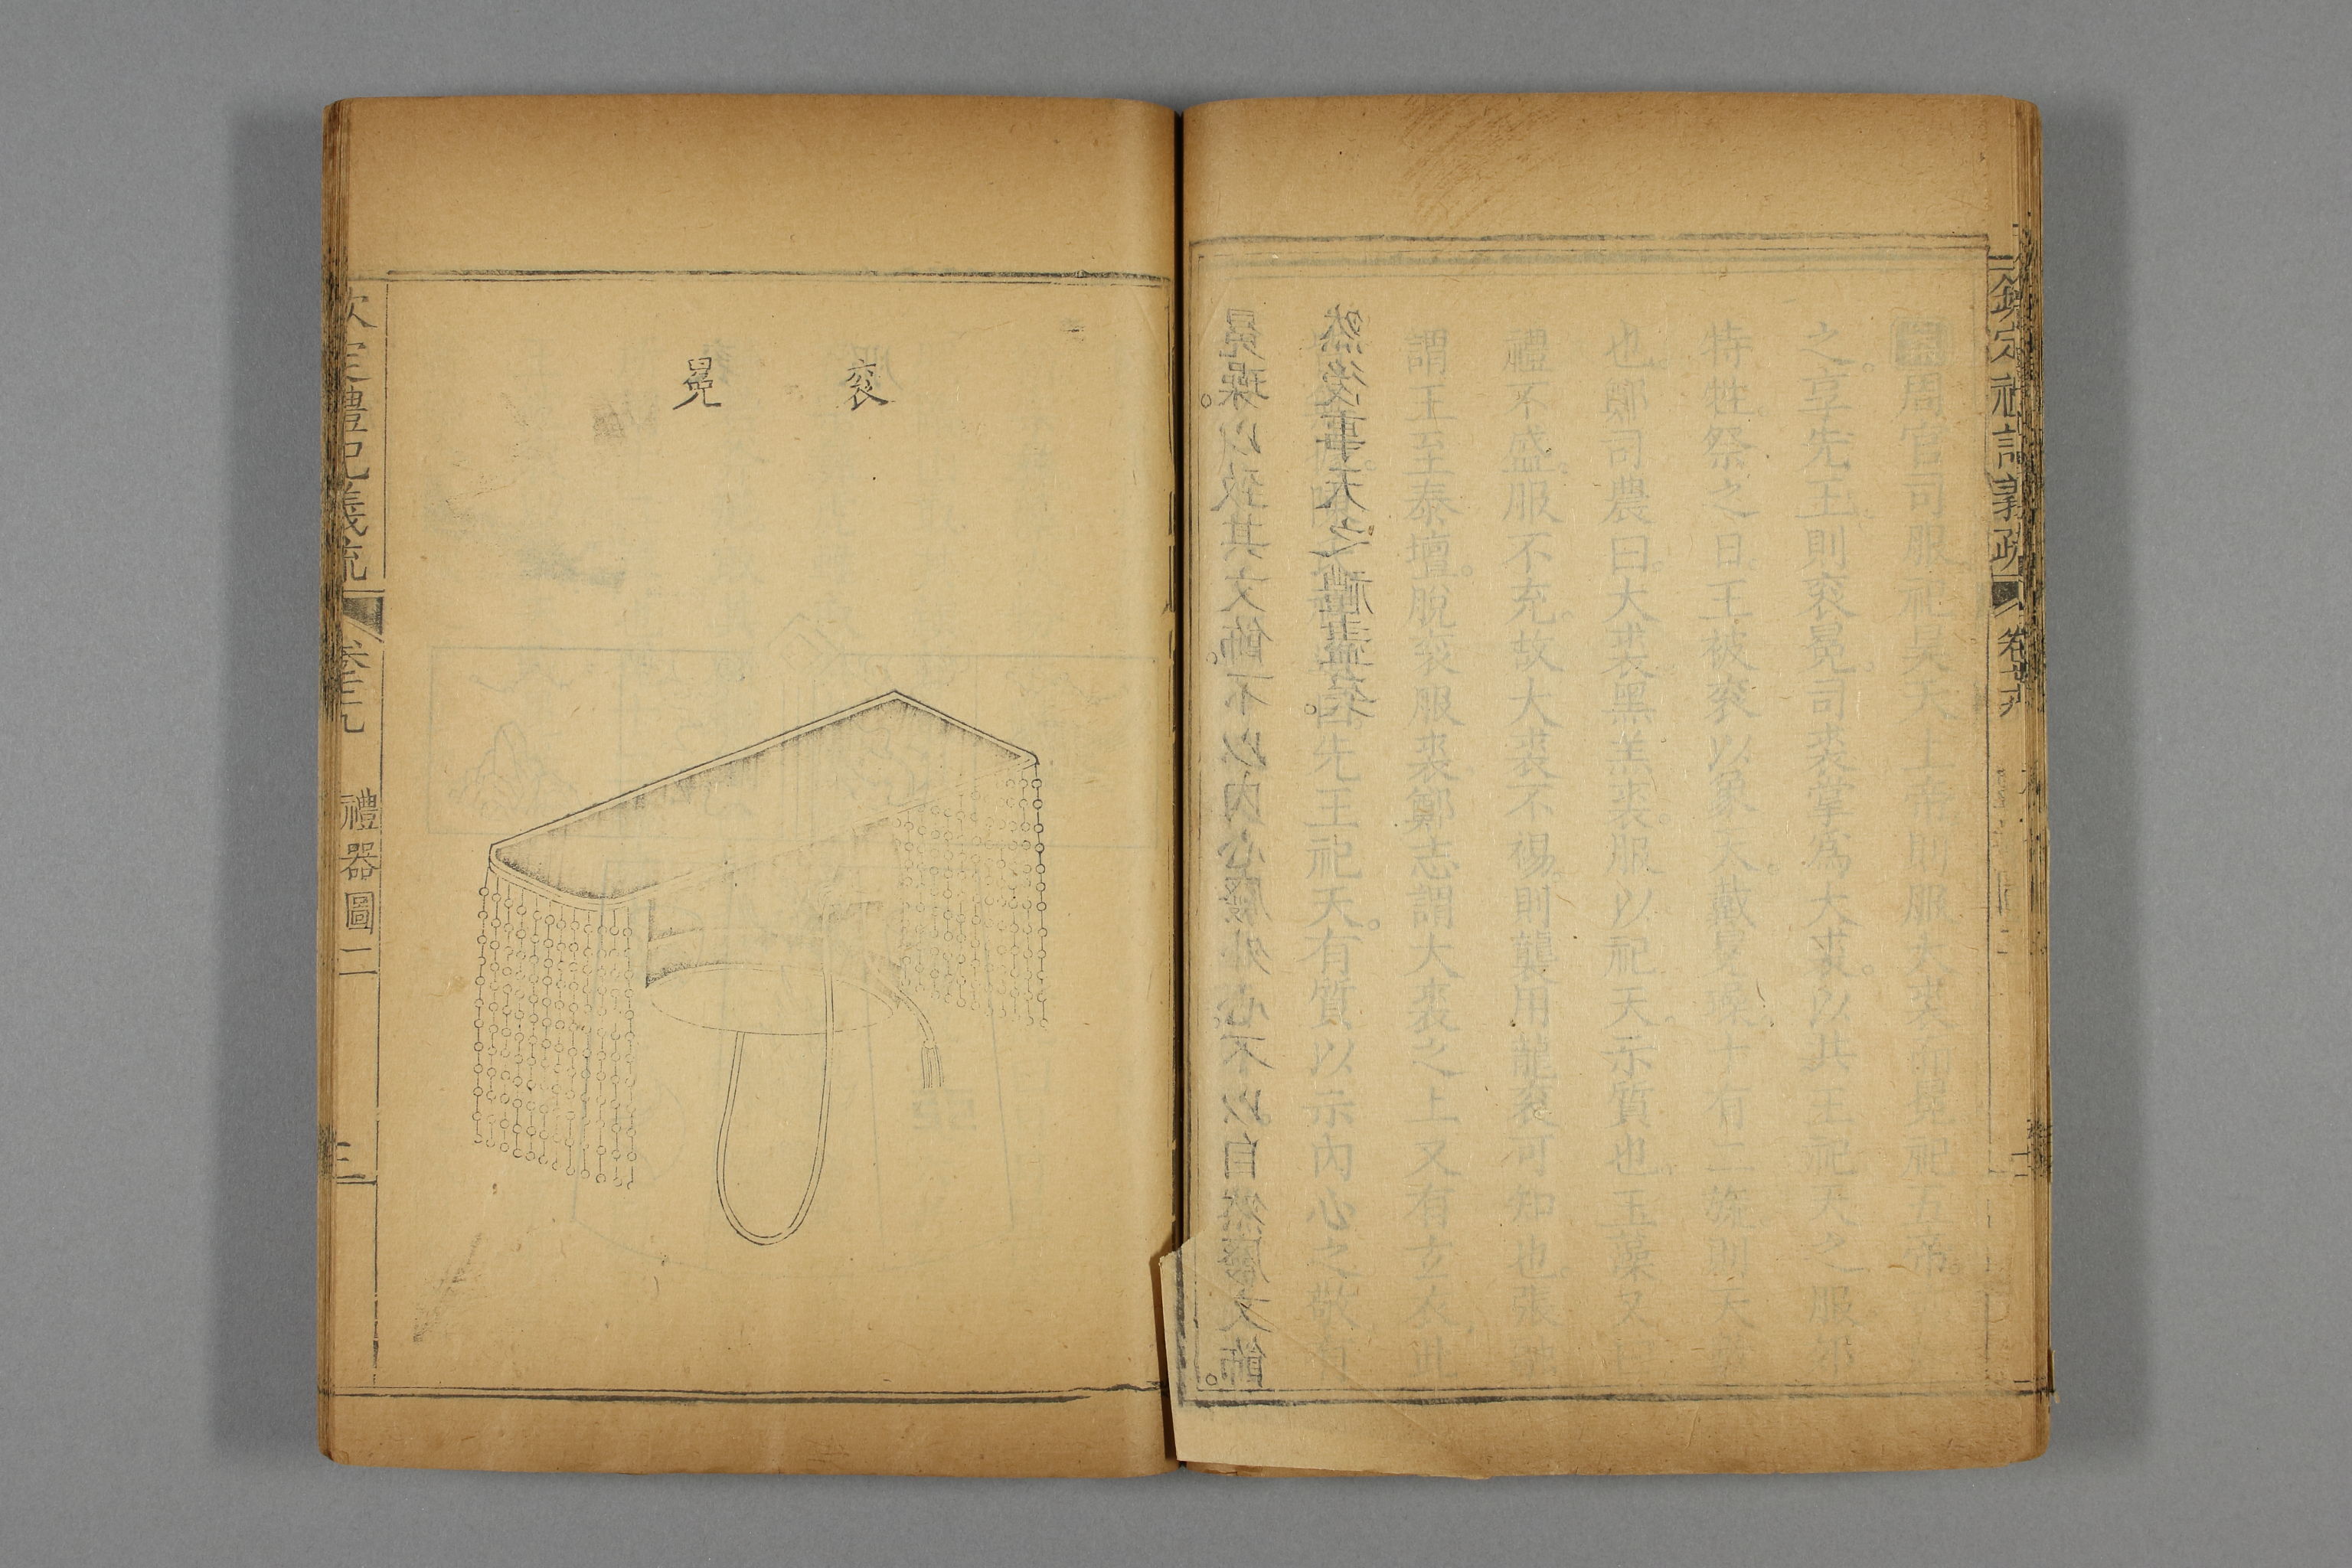 周官司服祀昊天上帝則服大裘而冕祀五帝
之享先王則衮冕司裘掌為大裘以共王祀天之服郊
特牲祭之日王被衮以象天戴冕璪十有二旒則天數
也鄭司農曰大裘黑羔裘服以祀天示質也玉藻又
禮不盛服不充故大裘不裼則襲用龍衮可知也張融
謂王至泰壇脫衮服裘鄭志謂大裘之上又有玄衣此
先王祀天有質以示內心之敬有
冕璪以致其文飾不以內心廢外心不以自然廢文飾
然後事天之禮盡
衮冕
欽定禮記義疏 卷 禮器圖二